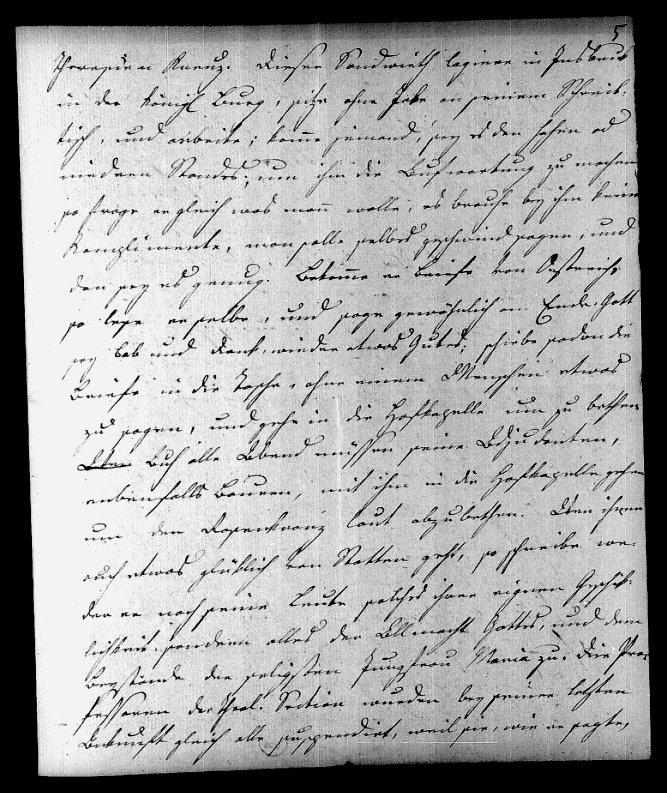 5
Theresien Kreuz. Dieser Sandwirth logiere in Insbruk
in der Königl Burg, sitze ohne Joke an seinem Schreib-
tisch, und arbeite; komme jemand, sey es den hohen od
niedren Standes, um ihm die Aufwartung zu machen
so frage er gleich was man wolle, es brauche bey ihm keine
Komplimente, man solle selbes geschwind sagen, und
dan sey es genug. Bekomme er Briefe von Oestreich,
so lese er selbe, und sage gewöhnlich am Ende: Gott
sey Lob und Dank, wieder etwas Gutes, schiebe sodan die
Briefe in die Tasche, ohne einem Menschen etwas
zu sagen, und gehe in die Hofkapelle um zu bethen
Auch alle Abend müssen seine Adjudenten,
ebenfalls Bauern, mit ihm in die Hofkapelle gehen
um den Rosenkranz laut abzubethen. Wen ihnen
auch etwas glüklich von Statten geht, so schreibe we-
der er noch seine Leute solches ihrer eignen Geschik-
lichkeit, sondern alles der Allmacht Gottes, und dem
Beystande der seligsten Jungfrau Maria zu. Die Pro-
fessoren der Theol. Section wurden bey seiner letzten
Ankunft gleich alle suspendirt, weil sie, wie er sagte,